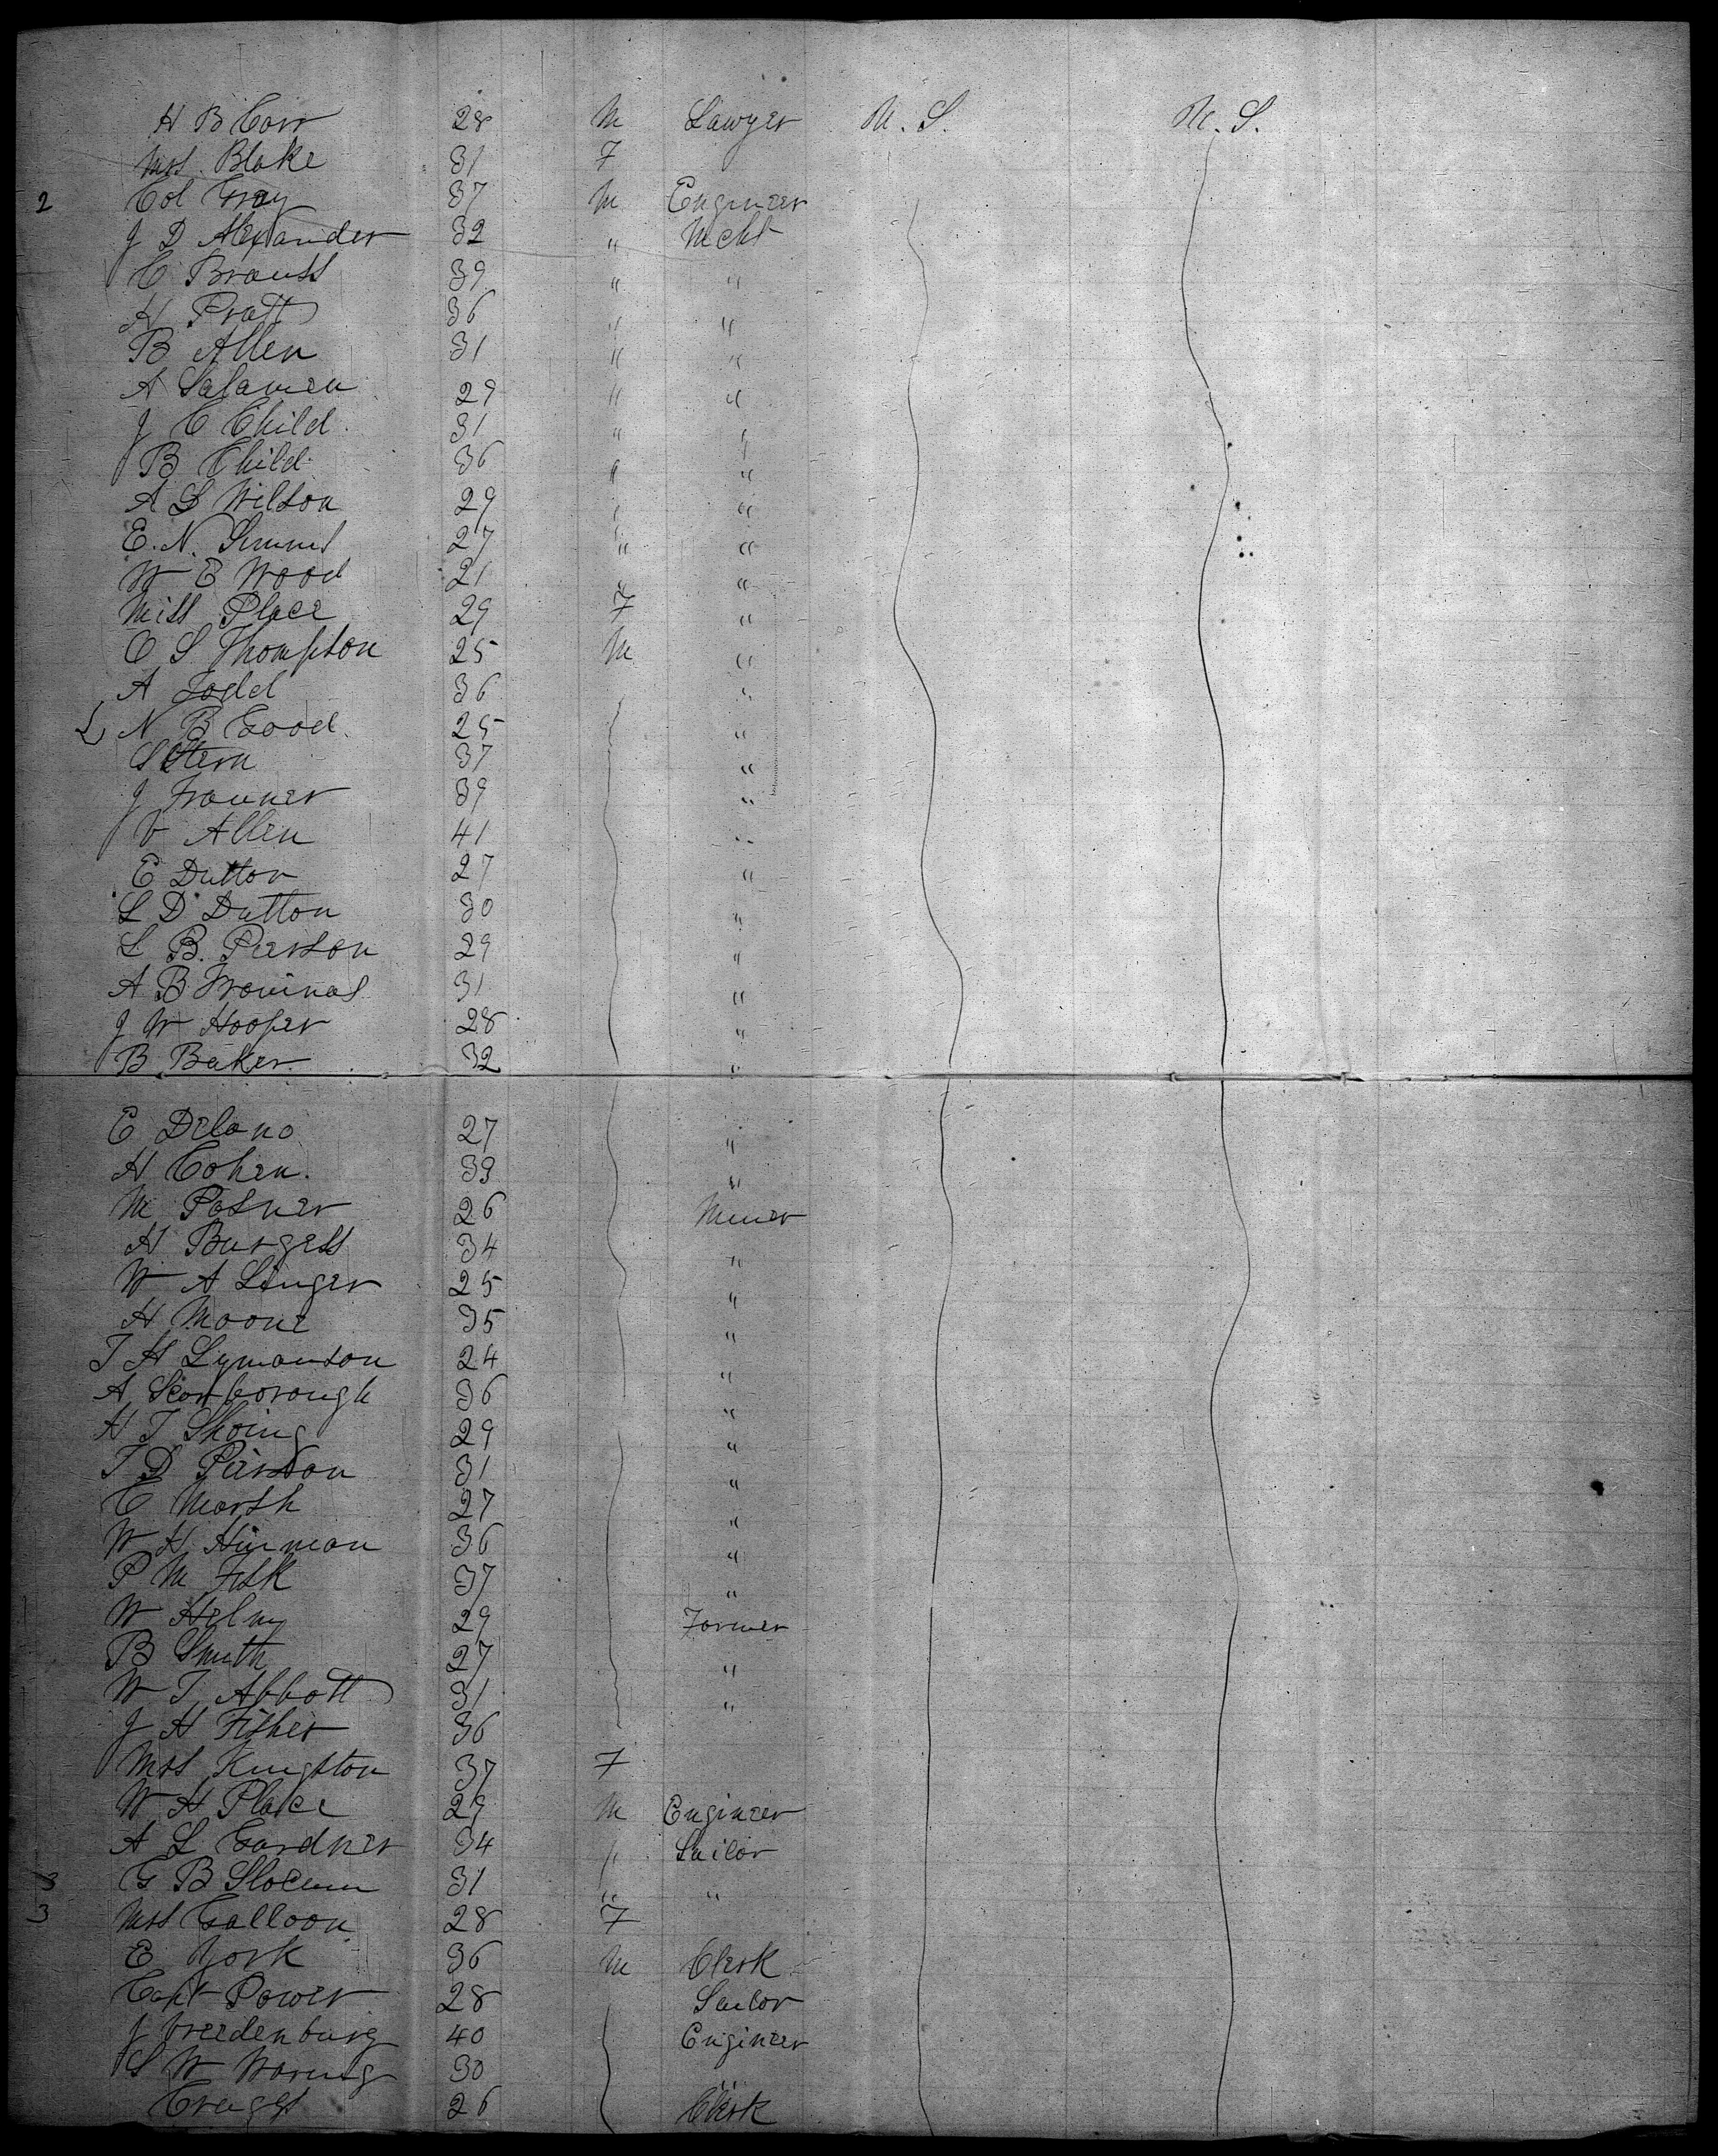 H B Corr 28 M Lawyer U. S. U. S.
Mrs. Blake 31 F
2 Col Gray 37 M Engineer
J D Alexander 32 " Mcht
C Brauss 39 " "
H Pratt 36 " "
B Allen 31 " "
A Salamen 29 " "
J C Child 31 " "
B Child 36 " "
A S Wilson 29 " "
E. N. Simms 27 " "
W E Wood 21 " "
Miss Place 29 F "
C S Thompson 25 M "
A Todd 36 "
N B Good 25 "
S Stern 37 "
J Frauner 39 "
V Allen 41 "
E Dutton 27 "
L D Dutton 30 "
L B. Pierson 29 "
A B 31 "
J W Hooper 28 "
B Baker 32 "
E Delano 27 "
H Cohen. 39 "
M Posner 26 Miner
H Burgess 34 "
W A Linger 25 "
H Moone 35 "
T H Lymanson 24 "
A Scarborough 36 "
H T Shoing 29 "
T D Pierson 31 "
C Marsh 27 "
W H Hinman 36 "
P M Fisk 37 "
W Helmy 29 Farmer
B Smith 27 "
W T Abbott 31 "
J H Fisher 36
Mrs Kingston 37 F
W H Place 29 M Engineer
A L Gardner 34 " Sailor
3 G B Slocum 31 " "
3 Mrs Galloon 28 F
E York 36 M Clerk
Capt Power 28 Sailor
J Vreedenburg 40 Engineer
S W Waring 30 "
Craggs 26 Clerk